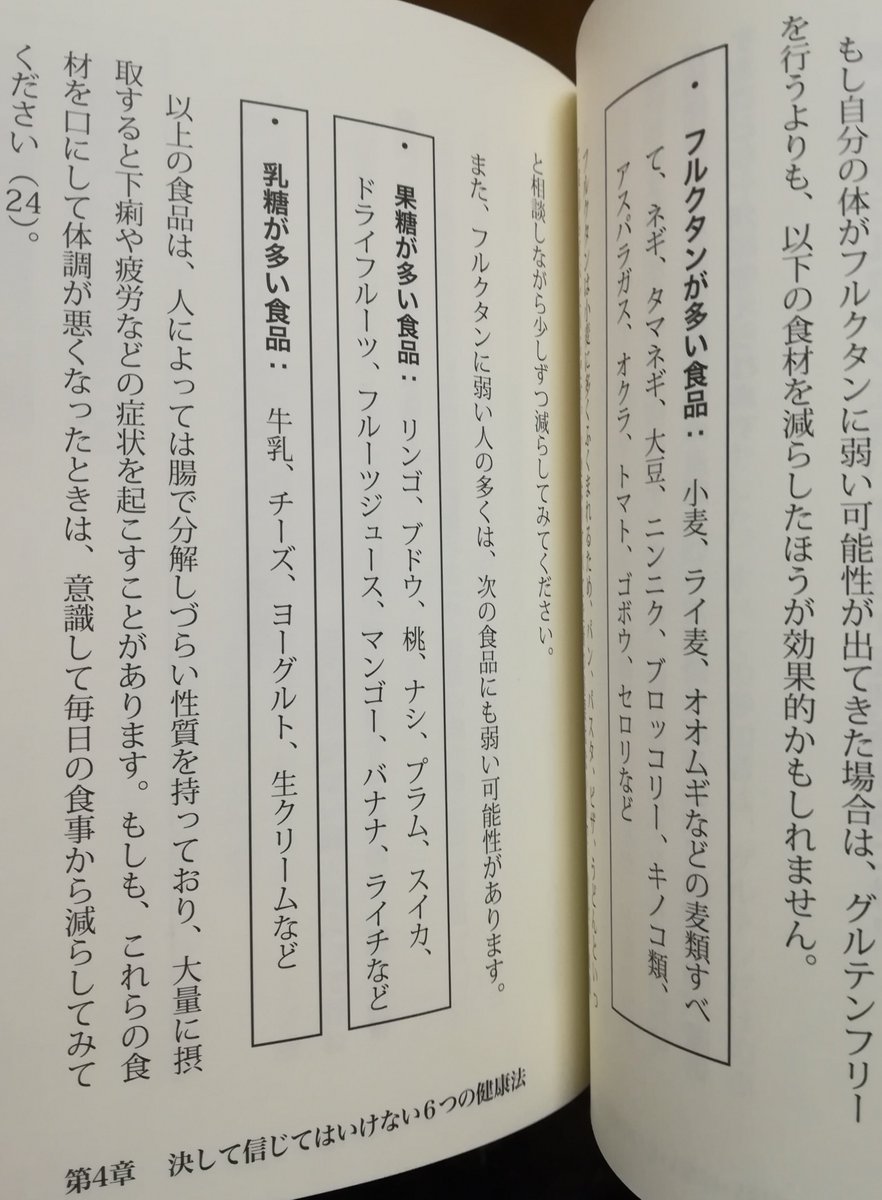 もし自分の体がフルクタンに弱い可能性が出てきた場合は、グルテンフリー
を行うよりも、以下の食材を減らしたほうが効果的かもしれません。
・フルクタンが多い食品： 小麦、ライ麦、オオムギなどの麦類すべ
て、ネギ、タマネギ、大豆、ニンニク、ブロッコリー、キノコ類、
アスパラガス、オクラ、トマト、ゴボウ、セロリなど
フルクタンは小麦に多くふくまれるため、パン、パスタ、ピザ、うどんといっ
と相談しながら少しずつ減らしてみてください。
また、フルクタンに弱い人の多くは、次の食品にも弱い可能性があります。
・果糖が多い食品： リンゴ、ブドウ、桃、ナシ、プラム、スイカ、
ドライフルーツ、フルーツジュース、マンゴー、バナナ、ライチなど
・乳糖が多い食品： 牛乳、チーズ、ヨーグルト、生クリームなど
以上の食品は、人によっては腸で分解しづらい性質を持っており、大量に摂
取すると下痢や疲労などの症状を起こすことがあります。もしも、これらの食
材を口にして体調が悪くなったときは、意識して毎日の食事から減らしてみて
ください（24）。
第4章 決して信じてはいけない6つの健康法